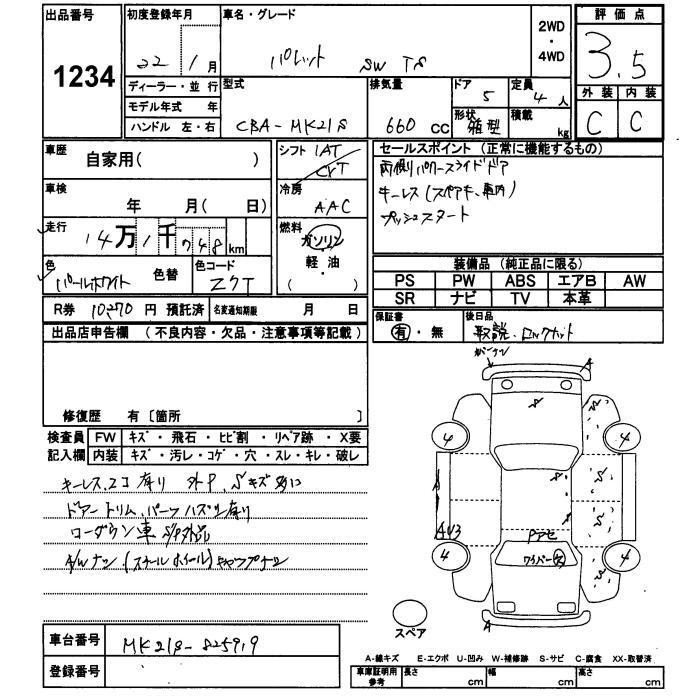 出品番号
1234
初度登録年月
22 / 1 月
車名・グレード
パレット SW TS
2WD
・
4WD
評価点
3.5
外装 内装
C C
ディーラー・並行
モデル年式 年
ハンドル 左・右
型式
CBA-MK21S
排気量
660 CC
ドア 5
形状 箱型
定員 4 人
積載 kg
車歴
自家用( )
シフト IAT
CVT
セールスポイント (正常に機能するもの)
両側パワースライドドア
キーレス(スペアキ、車内)
プッシュスタート
車検
年 月( 日)
冷房
AAC
走行
14万1千748km
燃料
ガソリン
・
軽・油
( )
色
パールホワイト 色替
色コード
ZCT
装備品 (純正品に限る)
PS PW ABS エアB AW
SR ナビ TV 本革
R券 10270 円 預託済 名変通知期限 月 日
保証書
有・無
後日品
取説、ロックナット
出品店申告欄 (不良内容・欠品・注意事項等記載)
修復歴 有〔箇所 〕
検査員 FW キズ・飛石・ヒビ割・リペア跡・X要
記入欄 内装 キズ・汚レ・コゲ・穴・スレ・キレ・破レ
キーレス、スコ有り 外P、Sキズ多い
ドアートリム、パーツハズレ有り
ローダウン車 S/P外品
A/Wナシ、(スチールホイール)キャップナシ
A
S
S
4 4
S
S
A
S
AU3
Pアセ
ワイパー欠
S
4 4
A
スペア
車台番号
MK21S-825919
登録番号
A-線キズ E-エクボ U-凹み W-補修跡 S-サビ C-腐食 XX-取替済
車庫証明用参考 長さ cm 幅 cm 高さ cm